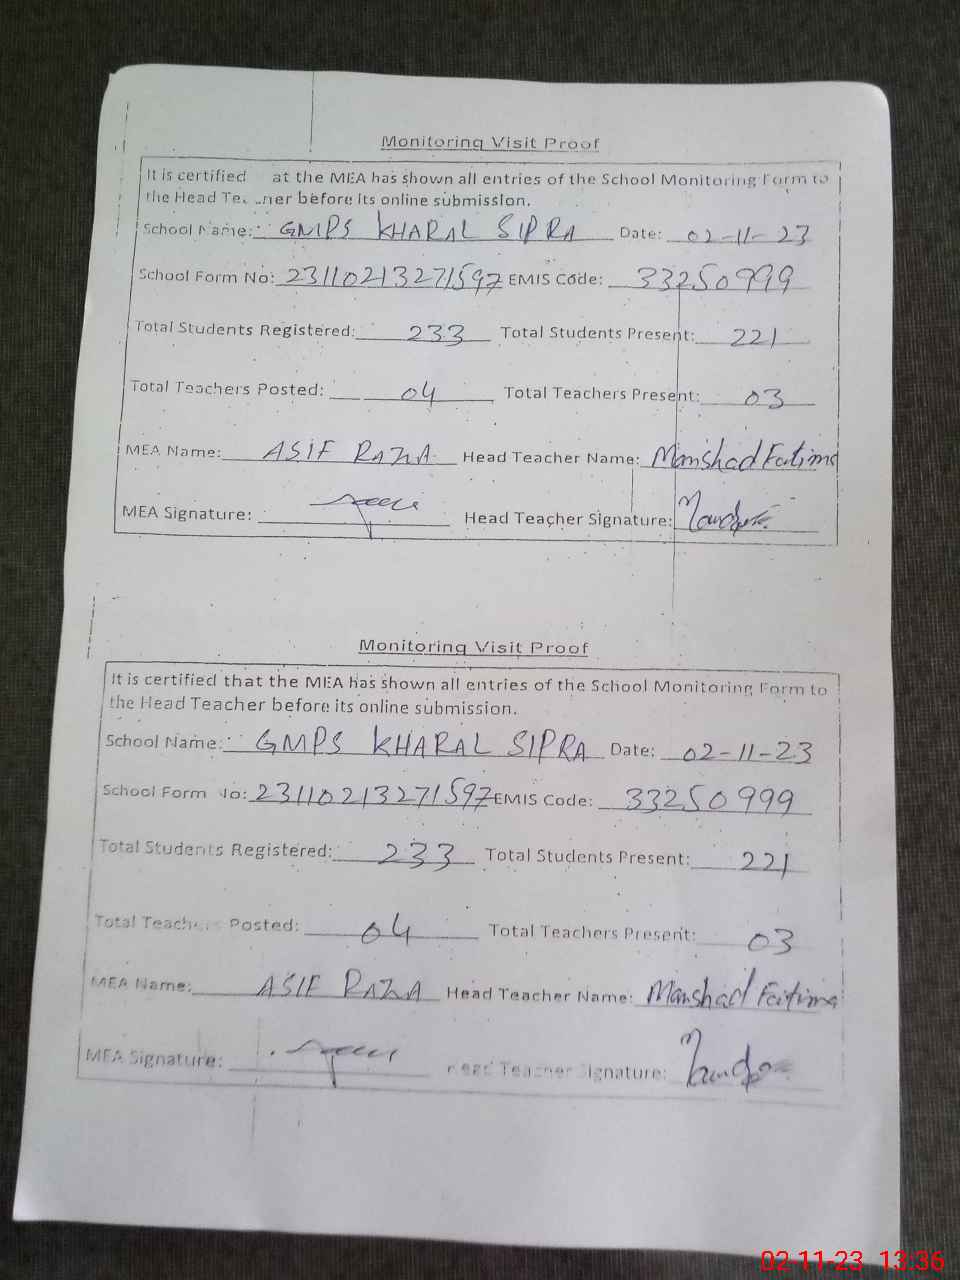 Monitoring Visit Proof
It is certified at the MEA has shown all entries of the School Monitoring Form to
the Head Te. .ner before its online submission.
School Name: GMPS KHARAL SIPRA Date: 02-11-23
School Form No: 23110213271597 EMIS Code: 33250999
Total Students Registered: 233 Total Students Present: 221
Total Teachers Posted: 04 Total Teachers Present: 03
MEA Name: ASIF RAZA Head Teacher Name: Manshad Fatima
MEA Signature: Head Teacher Signature:
Monitoring Visit Proof
It is certified that the MEA has shown all entries of the School Monitoring Form to
the Head Teacher before its online submission.
School Name: GMPS KHARAL SIPRA Date: 02-11-23
School Form No: 23110213271597 EMIS Code: 33250999
Total Students Registered: 233 Total Students Present: 221
Total Teachers Posted: 04 Total Teachers Present: 03
MEA Name: ASIF RAZA Head Teacher Name: Manshad Fatima
MEA Signature: Head Teacher Signature:
02-11-23 13:36